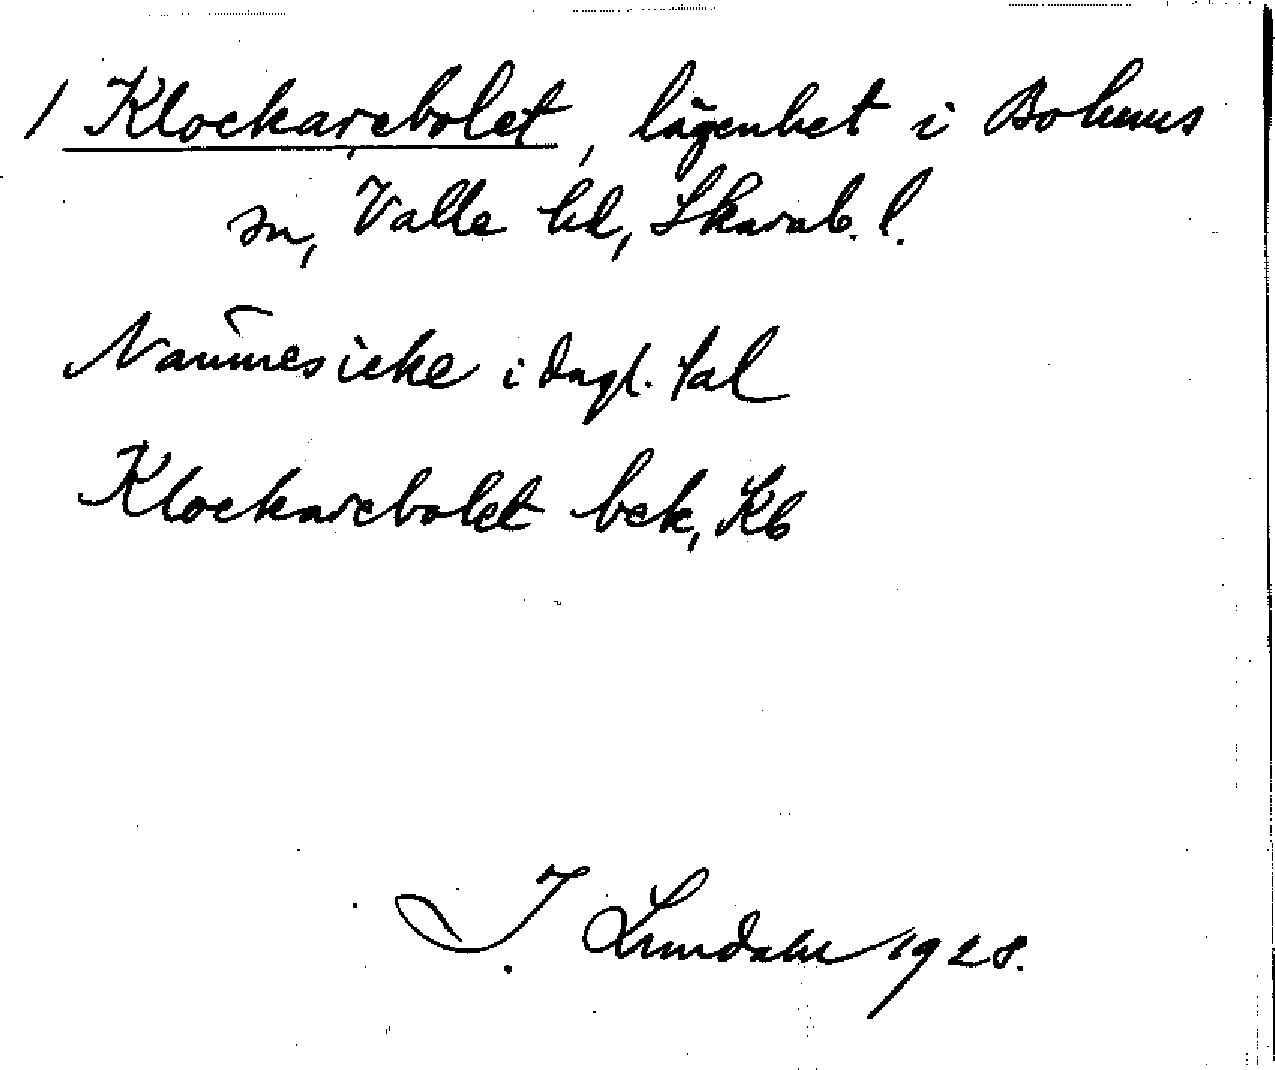 / Klockarebolet, lägenhet i Bolums
sn, Valle hd, Skarab. l.
Namnes icke i dagl. tal
Klockarebolet bek, Kb
I. Lundahl 1928.